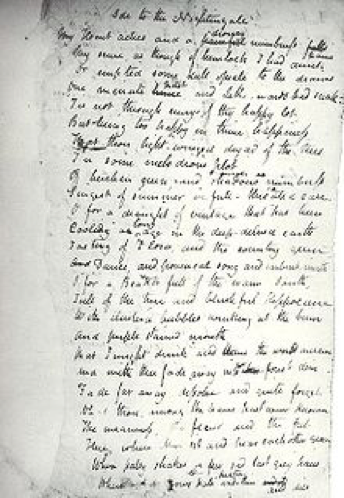 Ode to the Nightingale
My Heart aches and a drowsy painful numbness falls
My sense as though of hemlock I had drunk
Or emptied some dull opiate to the drains
One minute hence past and Lethe-wards had sunk
'Tis not through envy of thy happy lot
But being too happy in thine happiness
That thou light-winged dryad of the trees
In some melodious plot
Of beechen green and shadows numberless
Singest of summer in full-throated ease
O for a draught of vintage that has been
Cooling an age in the deep-delved earth
Tasting of Flora and the country green
And Dance, and provencal song and sunburnt mirth
O for a Beaker full of the warm South
Full of the true and blushful Hippocrene
With cluster'd bubbles winking at the brim
And purple stained mouth
That I might drink and leave the world unseen
And with thee fade away forest dim
Fade far away dissolve and quite forget
What thou among the leaves hast never known
The weariness, the fever and the fret
Here, where men sit and hear each other groan
Where palsy shakes a few sad last grey hairs
Where youth grows pale and thin and dies